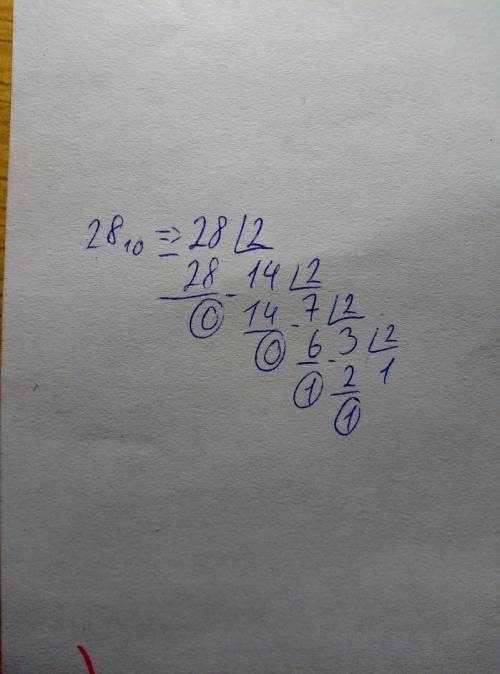 28₁₀ => 28 2
28 - 14 2
0 14 - 7 2
0 6 - 3 2
1 2 1
1